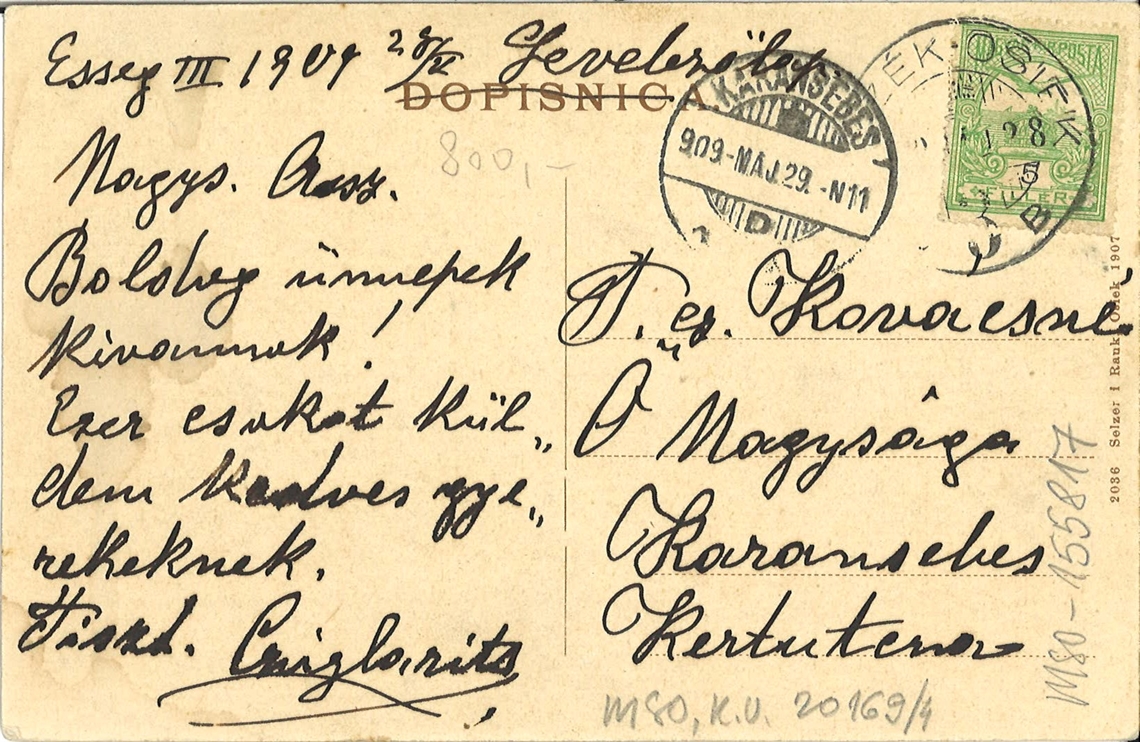 Esseg III 1909 28/V Levelezőlap
DOPISNICA.
800,-
Nagys. Assz.
Boldog ünnepek
kivannok!
Ezer csokot kül„
dem kedves gye„
rekeknek.
Tiszt.
KARANSEBES
909-MÁJ.29.-N11
D
OSIEK
28
5
B
10
POSTA
FILLER
T. cz. Kovacsné
Ő Nagysága
Karansebes
Kertutcza
2036 Selzer i Rank, Osiek 1907
MSO-155817
MSO, K.U. 20169/4